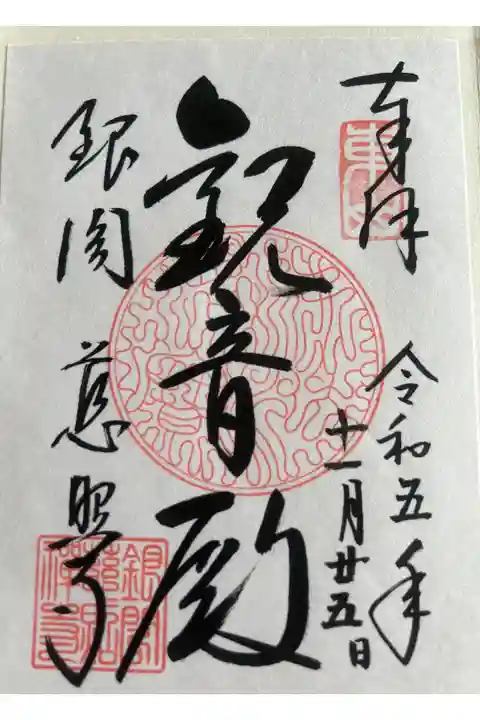 奉拝
令和五年
十一月廿五日
観音殿
銀閣 慈照寺
東山
銀閣慈照禅寺